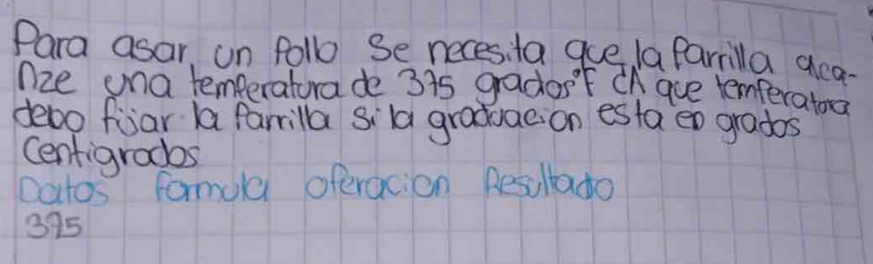 Para asar un pollo se necesita que la parrilla alca-
nze una temperatura de 375 grados °F ¿A que temperatura
debo fijar la parrilla si la graduacion esta en grados
Centigrados
Datos formula operacion Resultado
395